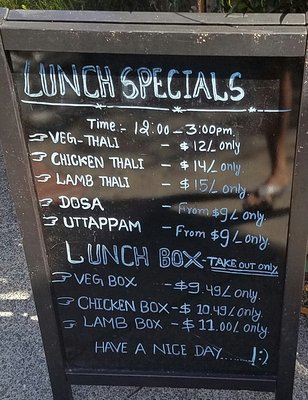 LUNCH SPECIALS
Time :- 12:00 - 3:00pm.
VEG-THALI - $12/- only
CHICKEN THALI - $14/- only.
LAMB THALI - $15/- only.
DOSA - From $9/- only.
UTTAPPAM - From $9/- only.
LUNCH BOX - TAKE OUT ONLY.
VEG BOX - $9.49/- only.
CHICKEN BOX - $10.49/- only.
LAMB BOX - $11.00/- only.
HAVE A NICE DAY........!:)